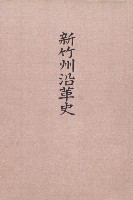 新竹州沿革史